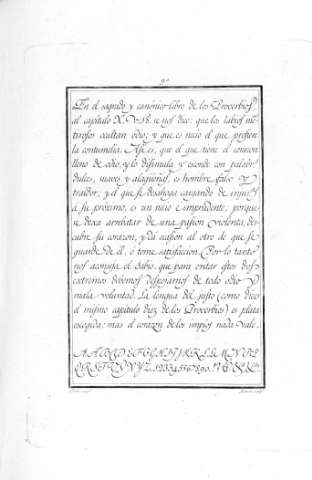 9.ª
En el sagrado y canónico libro de los Proverbios,
al capítulo X. V 18. se nos dice: que los labios men-
tirosos ocultan odio; y que es necio el que profiere
la contumelia. Asi es, que el que tiene el corazon
lleno de odio, y lo disimula y esconde con palabras
dulces, suaves y alagüeñas, es hombre falso y
traidor; y el que se desahoga cargando de injurias
a su próximo, es un necio é imprudente; porque
se dexa arrebatar de una pasion violenta, des-
cubre su corazon, y da ocasion al otro de que se
guarde de el, ó tome satisfaccion. Por lo tanto
nos aconseja el Sabio, que para evitar estos dos
extremos debemos despojarnos de todo odio y
mala voluntad. La lengua del justo (como dice
el mismo capítulo diez de los Proverbios) es plata
escogida: mas el corazon de los impios nada vale.